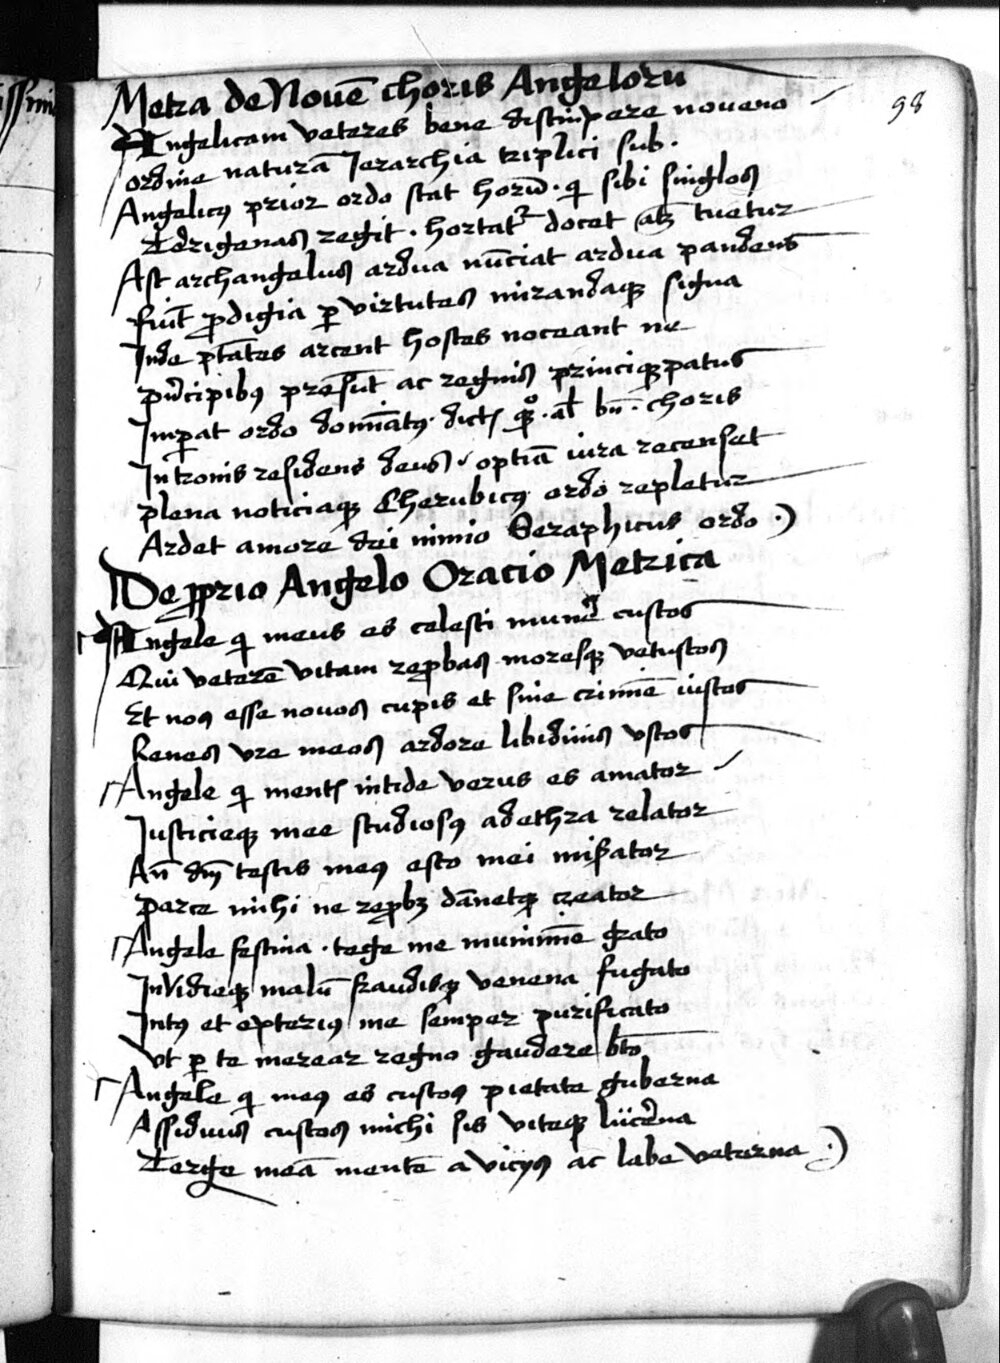 98
Metra de Nouē choris Angelorū
Angelicam veteres bene distinxere noueno
ordine naturā Jerarchia triplici sub.
Angelicꝰ prior ordo stat horū. qi sibi singlos
Terrigenas regit. hortatr docet atqꝫ tuetur
Ast archangelus ardua nūciat ardua pandens
fiūt ꝓdigia ꝑ virtutes mirandaqꝫ signa
Inde ptātes arcent hostes noceant ne
pncipibꝰ presūt ac regnis principatus
Impat ordo domīatꝰ choris
In tronis residens deus optīa iura recenset
plena noticiaqꝫ Cherubicꝰ ordo repletur
Ardet amore dei nimio Seraphicus ordo .)
De ꝓprio Angelo Oracio Metrica
Angele qi meus es celesti munē custos
Qui veterē vitam reꝓbas moresqꝫ vetustos
Et nos esse nouos cupis et sine crimīe iustos
Renes vre meos ardore libidinis vstos
Angele qi mentꝭ nitide verus es amator
Justicieqꝫ mee studiosꝰ adethra relator
An dm̄ testis meꝰ esto mei misator
parce michi ne reꝓbꝫ dānetqꝫ creator
Angele festina. tege me munimīe grato
Inuidieqꝫ malū fraudisqꝫ venena fugato
Intꝰ et exteriꝰ me semper purificato
vt ꝑ te merear regno gaudere bto
Angele qi meꝰ es custos pietate guberna
Assiduus custos michi sis viteqꝫ lucerna
Terge meā mentē a vicijs ac labe veterna .)